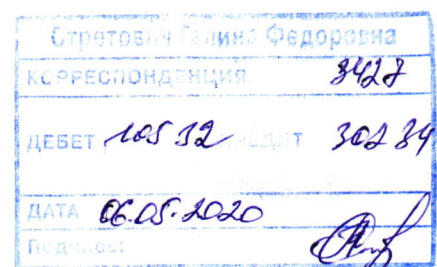 Галина Федоровна
КОРРЕСПОНДЕНЦИЯ 3427
ДЕБЕТ 105 32 КРЕДИТ 302 34
ДАТА 06.05.2020
Подпись: